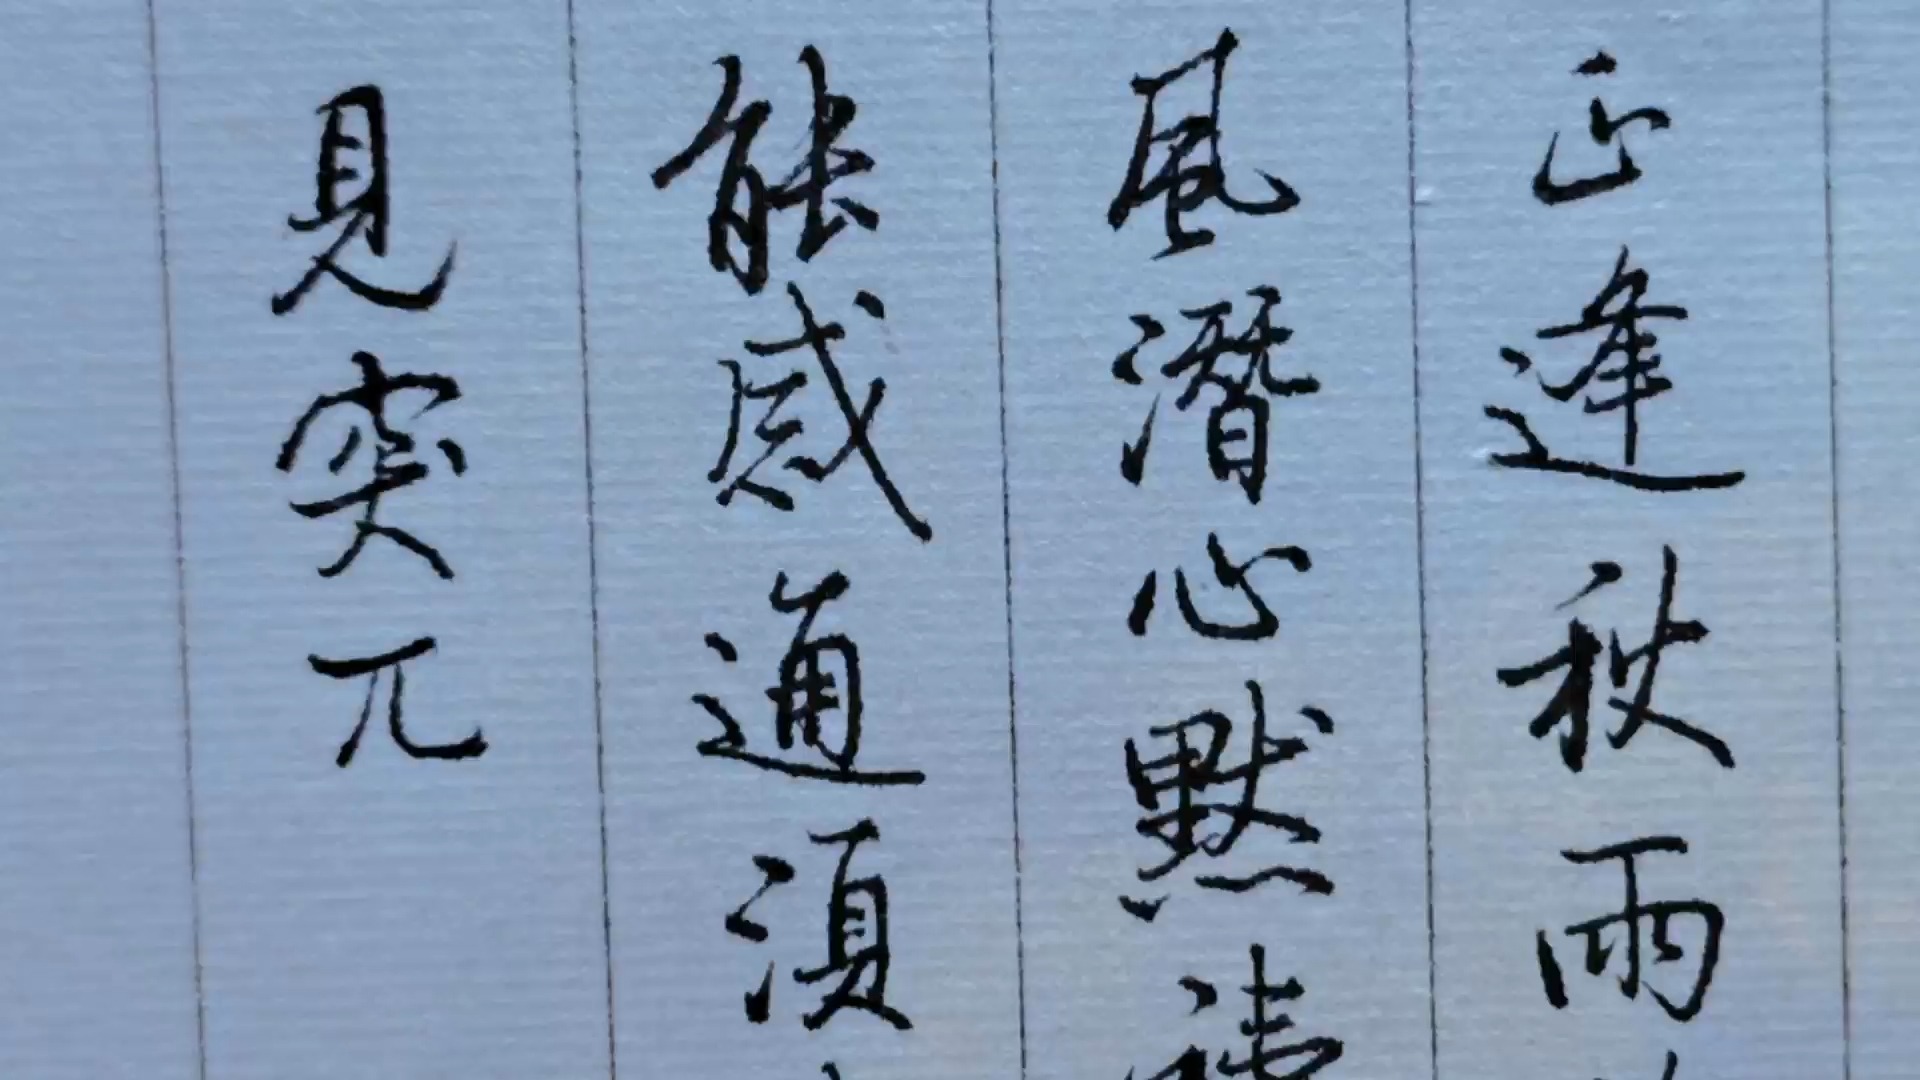 正逢秋雨
風潛心默禱
能感通須
見突兀